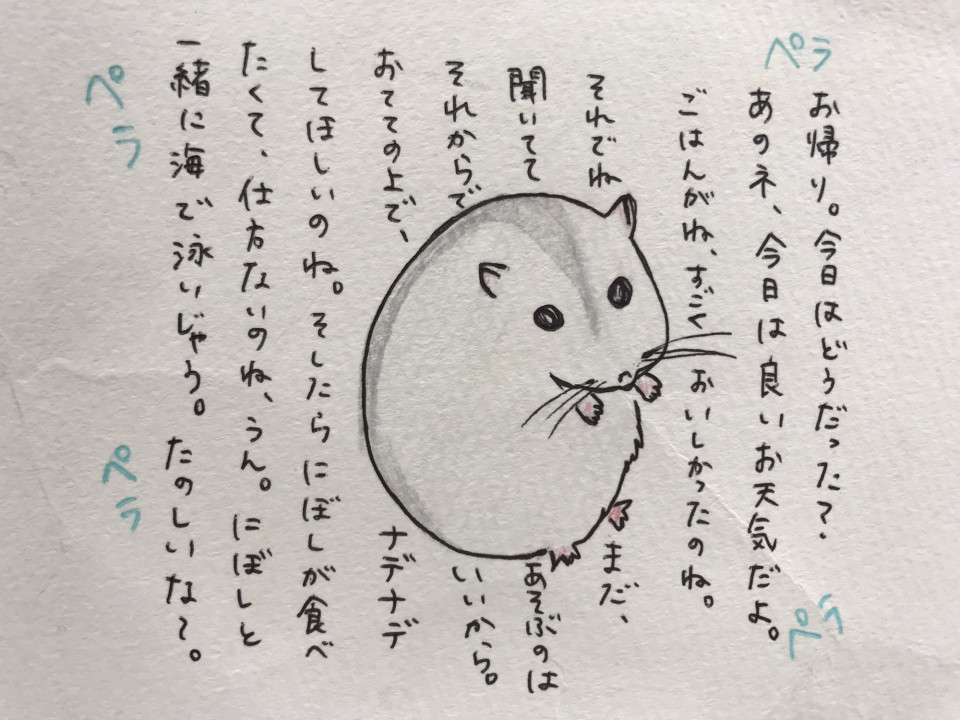 ペラ
お帰り。今日はどうだった？
あのネ、今日は良いお天気だよ。
ペラ
ごはんがね、すごく おいしかったのね。
それでね まだ、
聞いてて あそぶのは
それからで いいから。
おてての上で、 ナデナデ
してほしいのね。そしたら にぼしが食べ
たくて、仕方ないのね、うん。 にぼしと
一緒に海で泳いじゃう。 たのしいな〜。
ペラ
ペラ